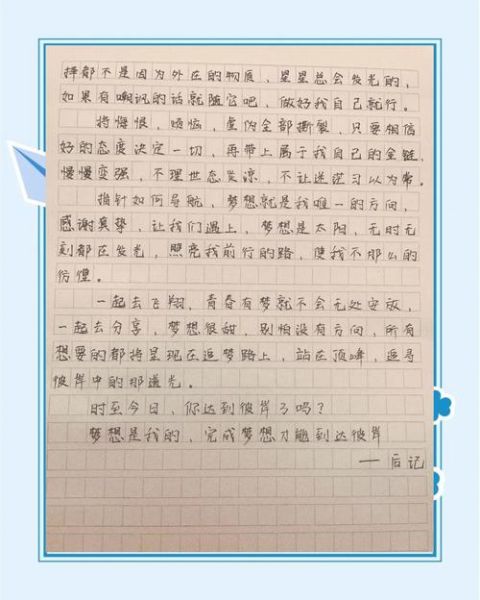 择都不是因为外在的物质、星星总会发光的,
如果有嘲讽的话就随它吧,做好我自己就行。
将悔恨,烦恼,虚伪全部撕裂,只要相信
好的态度决定一切,再带上属于我自己的金链,
慢慢变强,不理世态炎凉,不让迷茫习以为常。
指针如何导航,梦想就是我唯一的方向,
感谢真挚,让我们遇上,梦想是太阳,无时无
刻都在发光,照亮我前行的路,使我不那么的
彷徨。
一起去飞翔,青春有梦就不会无处安放,
一起去分享,梦想很甜,别怕没有方向,所有
想要的都将呈现在追梦路上,站在顶峰,追寻
彼岸中的那道光。
时至今日,你达到彼岸了吗?
梦想是我的,完成梦想才能到达彼岸
——后记